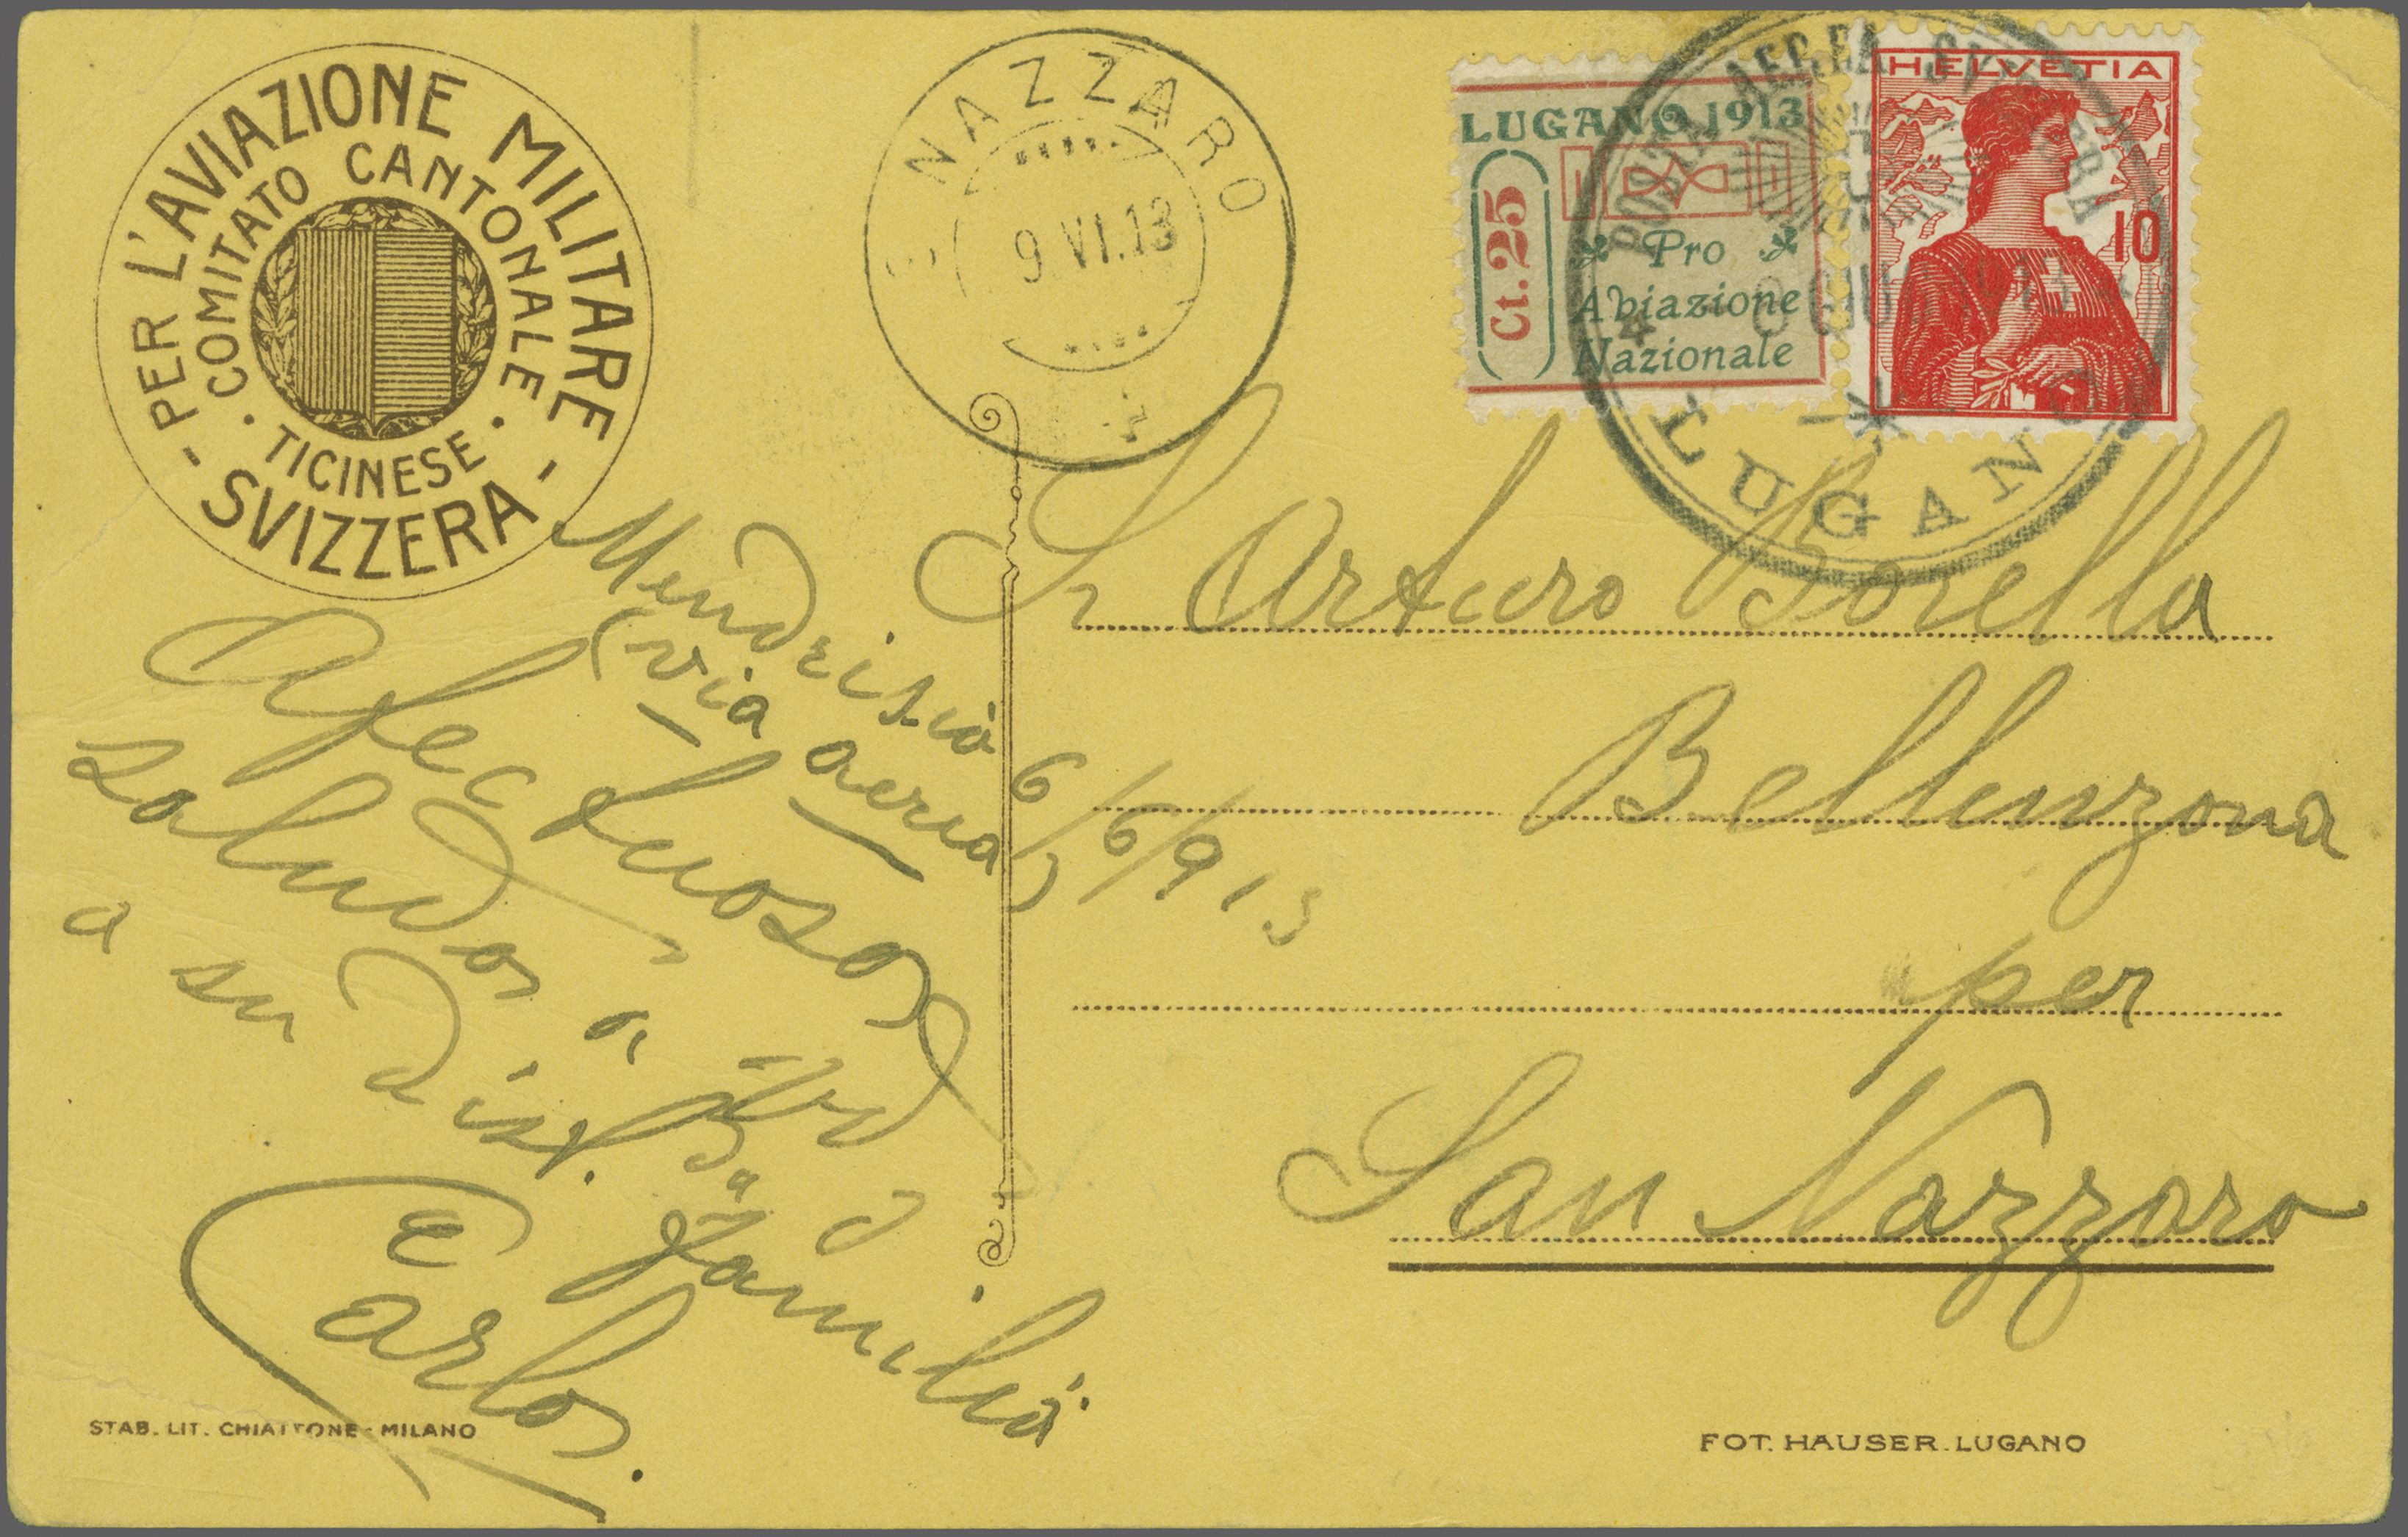 PER L'AVIAZIONE MILITARE
COMITATO CANTONALE
TICINESE
SVIZZERA
S. NAZZARO
9.VI.13
LUGANO 1913
Ct. 25
Pro
Aviazione
Nazionale
HELVETIA
10
POSTA AEREA
LUGANO
Mendrisio 6/6/913
(via aerea)
Afectuosos
saludos a
a su dist.
familia
Carlos.
Sr Arturo Borella
Bellinzona
per
San Nazzaro
STAB. LIT. CHIATTONE - MILANO
FOT. HAUSER. LUGANO